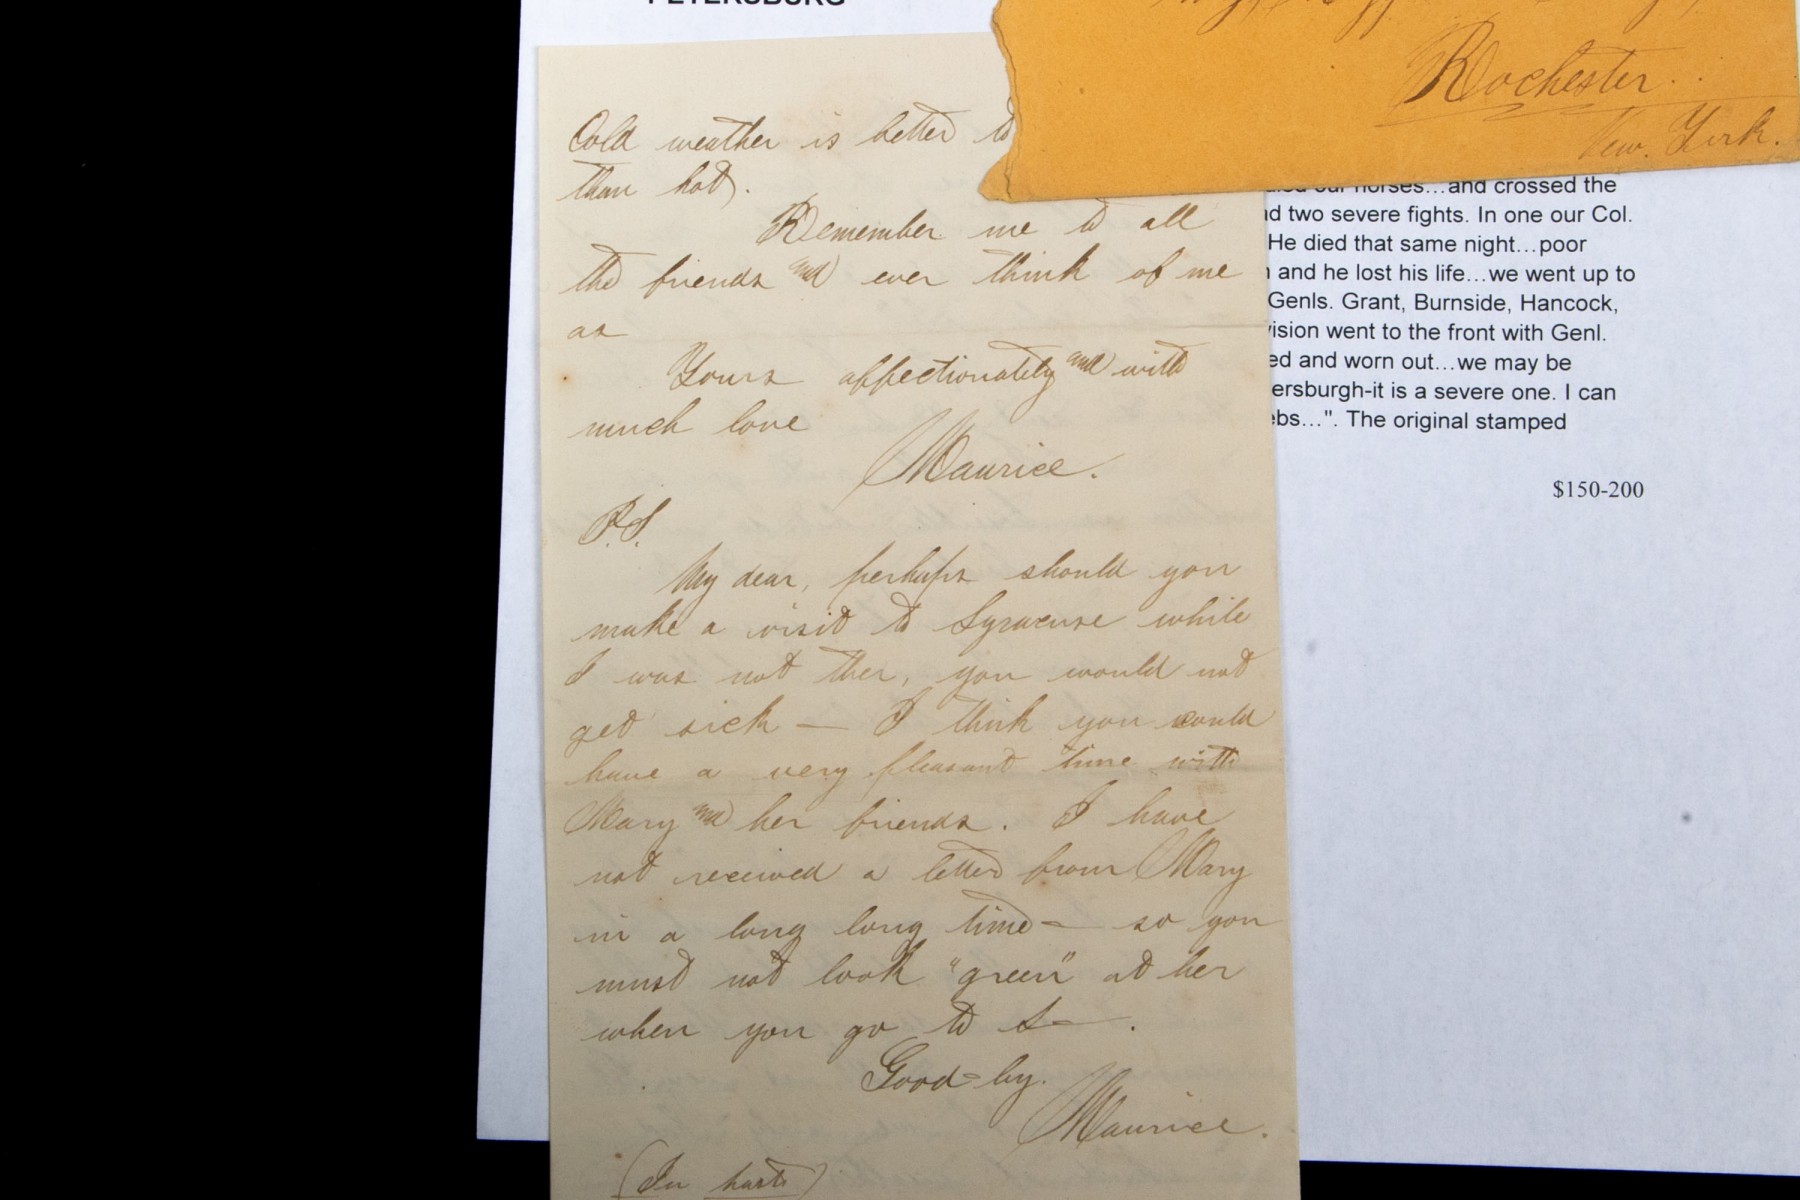 PETERSBURG
Cold weather is better to
than hot.
Remember me to all
the friends and ever think of me
as
Yours affectionately and with
much love
Maurice.
P.S.
My dear, perhaps should you
make a visit to Syracuse while
I was not ther, you would not
get sick — I think you could
have a very pleasant time with
Mary and her friends. I have
not received a letter from Mary
in a long long time — so you
must not look "green" at her
when you go to S—.
Good-by.
Maurice.
(In haste)
Rochester.
New. York.
our horses...and crossed the
two severe fights. In one our Col.
He died that same night...poor
and he lost his life...we went up to
Genls. Grant, Burnside, Hancock,
vision went to the front with Genl.
ed and worn out...we may be
ersburgh-it is a severe one. I can
ebs...". The original stamped
$150-200